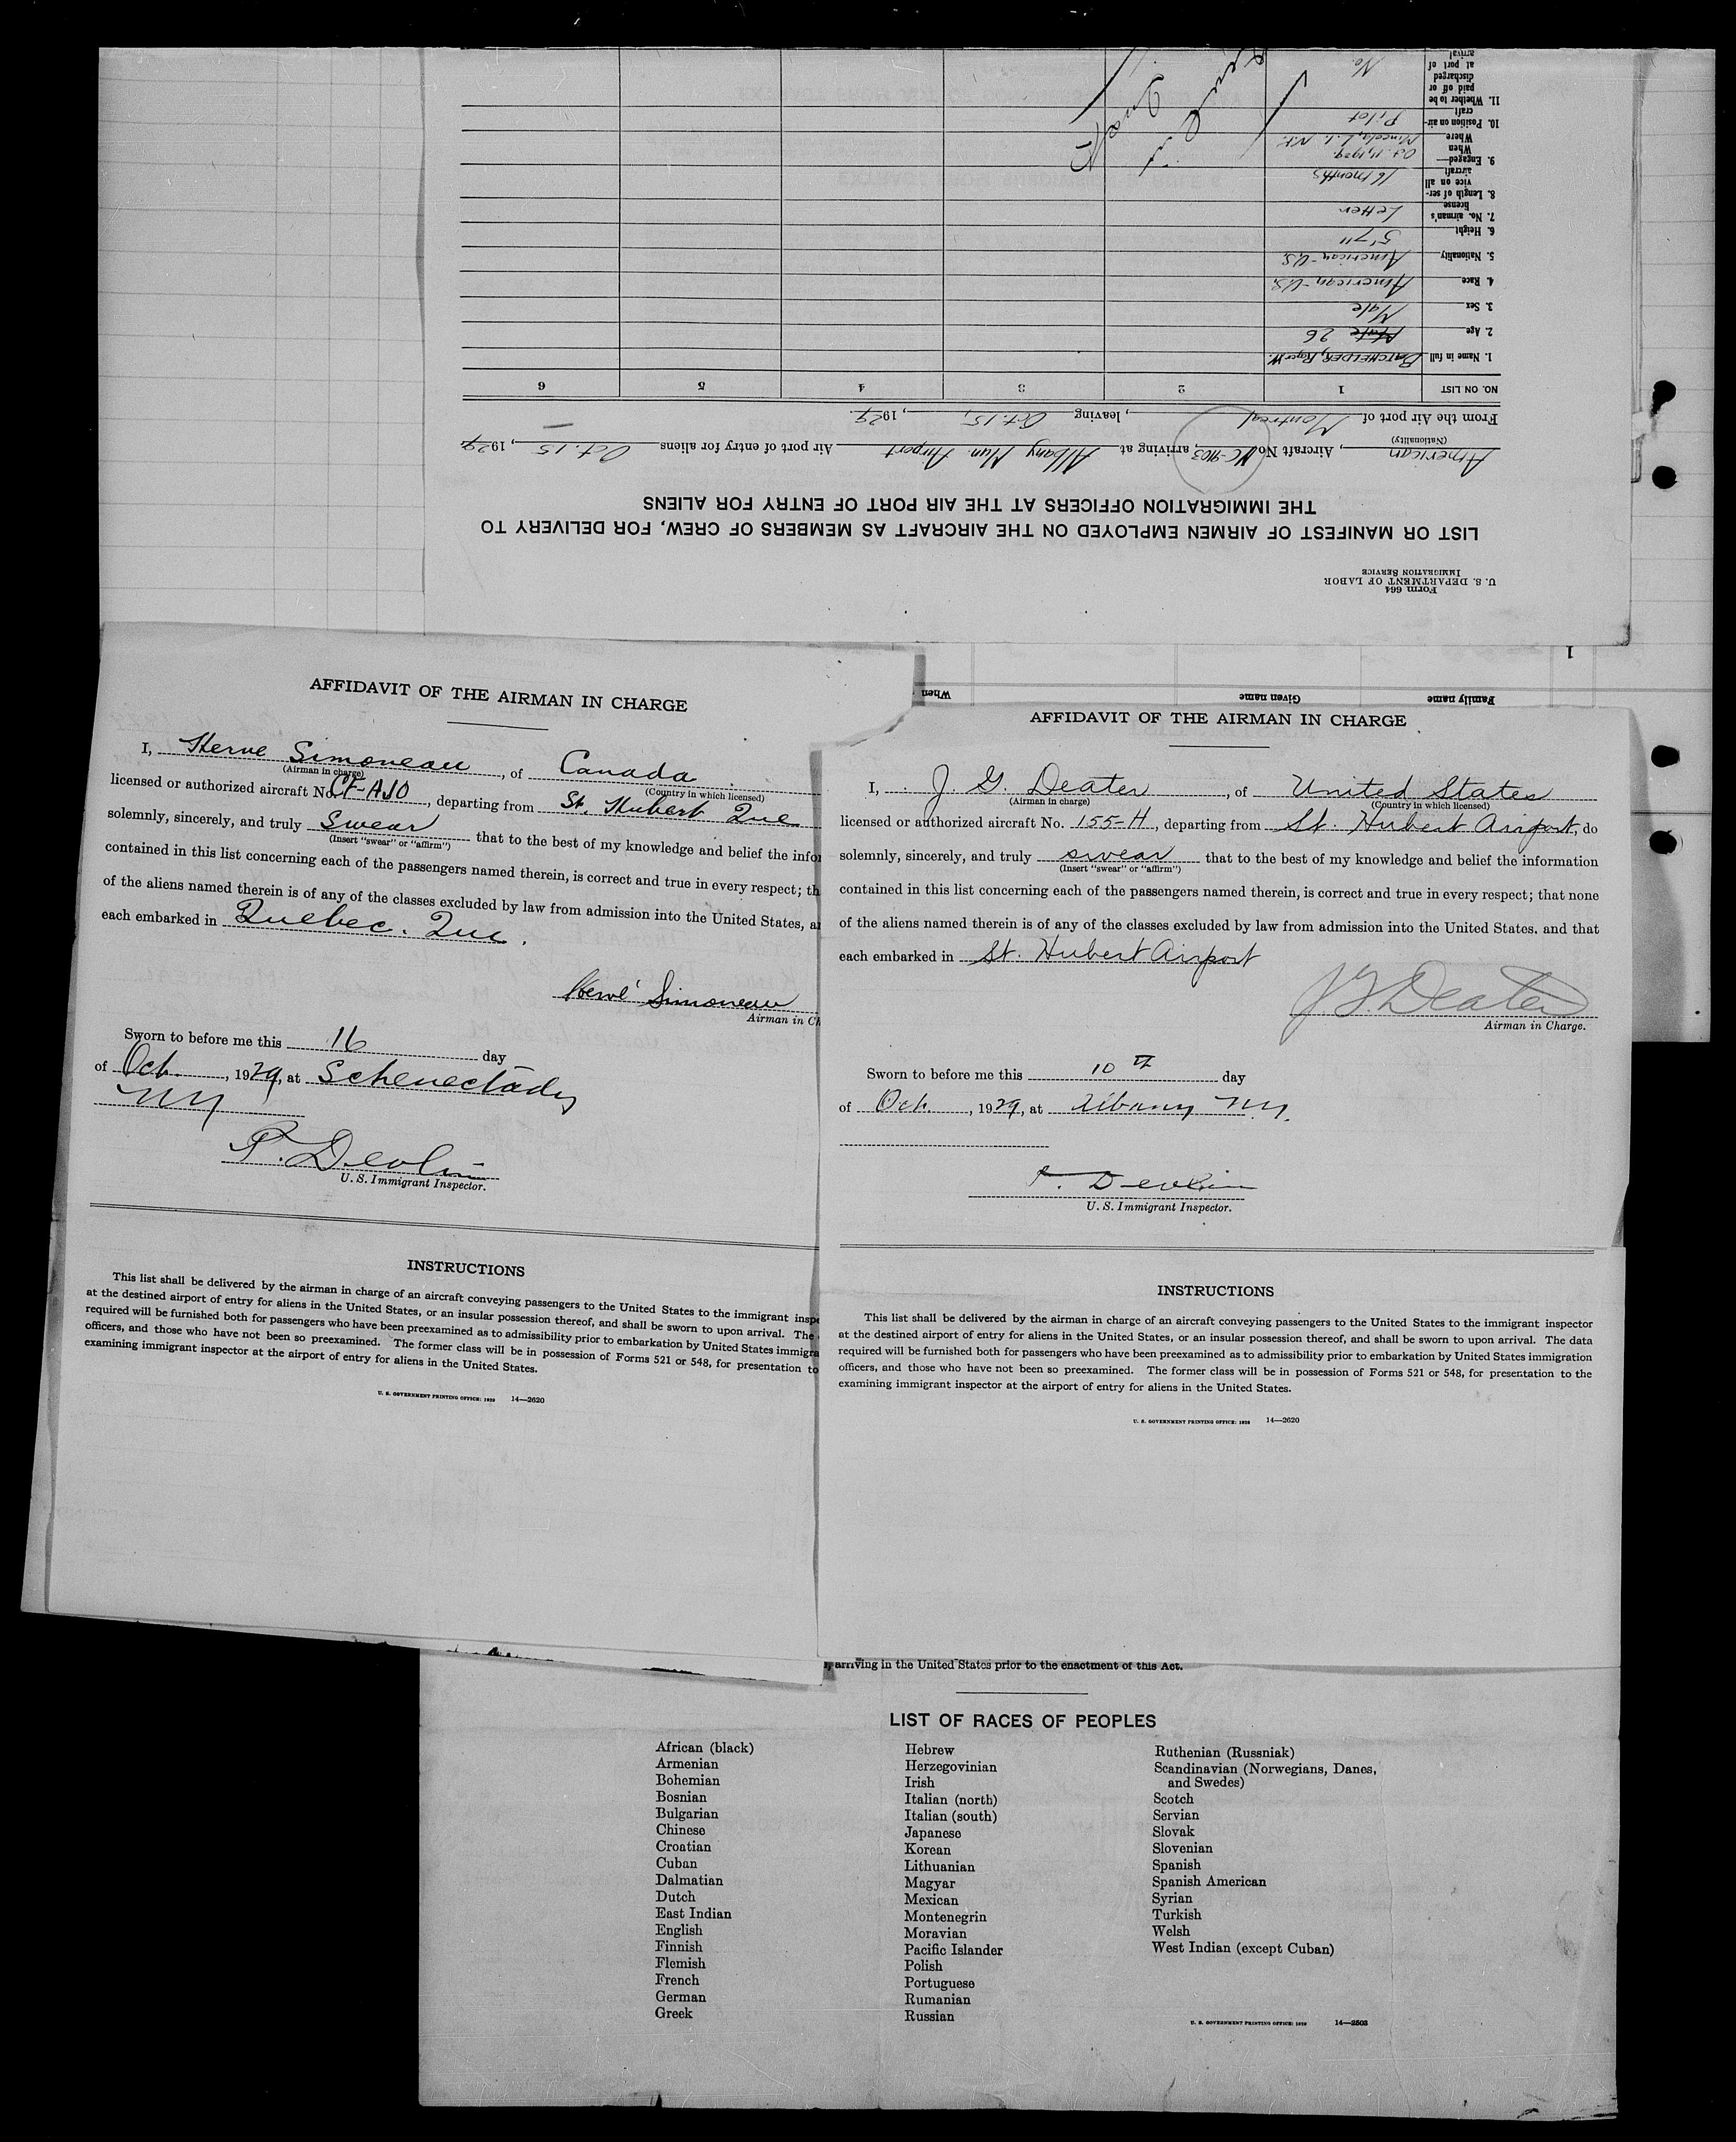 Form 664
U. S. DEPARTMENT OF LABOR
IMMIGRATION SERVICE
LIST OR MANIFEST OF AIRMEN EMPLOYED ON THE AIRCRAFT AS MEMBERS OF CREW, FOR DELIVERY TO
THE IMMIGRATION OFFICERS AT THE AIR PORT OF ENTRY FOR ALIENS
American, Aircraft No. NC-9103, arriving at Albany Mun. Airport Air port of entry for aliens Oct. 15, 1929
(Nationality)
From the Air port of Montreal, leaving Oct. 15, 1929.
NO. ON LIST 1 2 3 4 5 6
1. Name in full BATCHELDER, Roger W.
2. Age Male 26
3. Sex Male
4. Race American-U.S.
5. Nationality American-U.S.
6. Height 5'7"
7. No. airman's license Letter
8. Length of service on all aircraft 16 months
9. Engaged— When Oct. 11, 1929.
Where Mineola, L.I. N.Y.
10. Position on aircraft Pilot
11. Whether to be paid off or discharged at port of arrival No.
1
Family name Given name When
AFFIDAVIT OF THE AIRMAN IN CHARGE
I, Herve Simoneau, of Canada
(Airman in charge) (Country in which licensed)
licensed or authorized aircraft No. CF-AJO, departing from St. Hubert Que
solemnly, sincerely, and truly swear that to the best of my knowledge and belief the infor
(Insert "swear" or "affirm")
contained in this list concerning each of the passengers named therein, is correct and true in every respect; th
of the aliens named therein is of any of the classes excluded by law from admission into the United States, an
each embarked in Quebec. Que.
Hervé Simoneau
Airman in Ch
Sworn to before me this 16 day
of Oct., 1929, at Schenectady
NY
T. Devlin
U. S. Immigrant Inspector.
INSTRUCTIONS
This list shall be delivered by the airman in charge of an aircraft conveying passengers to the United States to the immigrant inspe
at the destined airport of entry for aliens in the United States, or an insular possession thereof, and shall be sworn to upon arrival. The
required will be furnished both for passengers who have been preexamined as to admissibility prior to embarkation by United States immigra
officers, and those who have not been so preexamined. The former class will be in possession of Forms 521 or 548, for presentation to
examining immigrant inspector at the airport of entry for aliens in the United States.
U. S. GOVERNMENT PRINTING OFFICE: 1929 14—2620
AFFIDAVIT OF THE AIRMAN IN CHARGE
I, J. G. Deater, of United States
(Airman in charge) (Country in which licensed)
licensed or authorized aircraft No. 155-H, departing from St. Hubert Airport, do
solemnly, sincerely, and truly swear that to the best of my knowledge and belief the information
(Insert "swear" or "affirm")
contained in this list concerning each of the passengers named therein, is correct and true in every respect; that none
of the aliens named therein is of any of the classes excluded by law from admission into the United States, and that
each embarked in St. Hubert Airport
J G Deater
Airman in Charge.
Sworn to before me this 10th day
of Oct., 1929, at Albany N.Y.
T. Devlin
U. S. Immigrant Inspector.
INSTRUCTIONS
This list shall be delivered by the airman in charge of an aircraft conveying passengers to the United States to the immigrant inspector
at the destined airport of entry for aliens in the United States, or an insular possession thereof, and shall be sworn to upon arrival. The data
required will be furnished both for passengers who have been preexamined as to admissibility prior to embarkation by United States immigration
officers, and those who have not been so preexamined. The former class will be in possession of Forms 521 or 548, for presentation to the
examining immigrant inspector at the airport of entry for aliens in the United States.
U. S. GOVERNMENT PRINTING OFFICE: 1928 14—2620
arriving in the United States prior to the enactment of this Act.
LIST OF RACES OF PEOPLES
African (black)
Armenian
Bohemian
Bosnian
Bulgarian
Chinese
Croatian
Cuban
Dalmatian
Dutch
East Indian
English
Finnish
Flemish
French
German
Greek
Hebrew
Herzegovinian
Irish
Italian (north)
Italian (south)
Japanese
Korean
Lithuanian
Magyar
Mexican
Montenegrin
Moravian
Pacific Islander
Polish
Portuguese
Rumanian
Russian
Ruthenian (Russniak)
Scandinavian (Norwegians, Danes,
and Swedes)
Scotch
Servian
Slovak
Slovenian
Spanish
Spanish American
Syrian
Turkish
Welsh
West Indian (except Cuban)
U. S. GOVERNMENT PRINTING OFFICE: 1929 14—2503